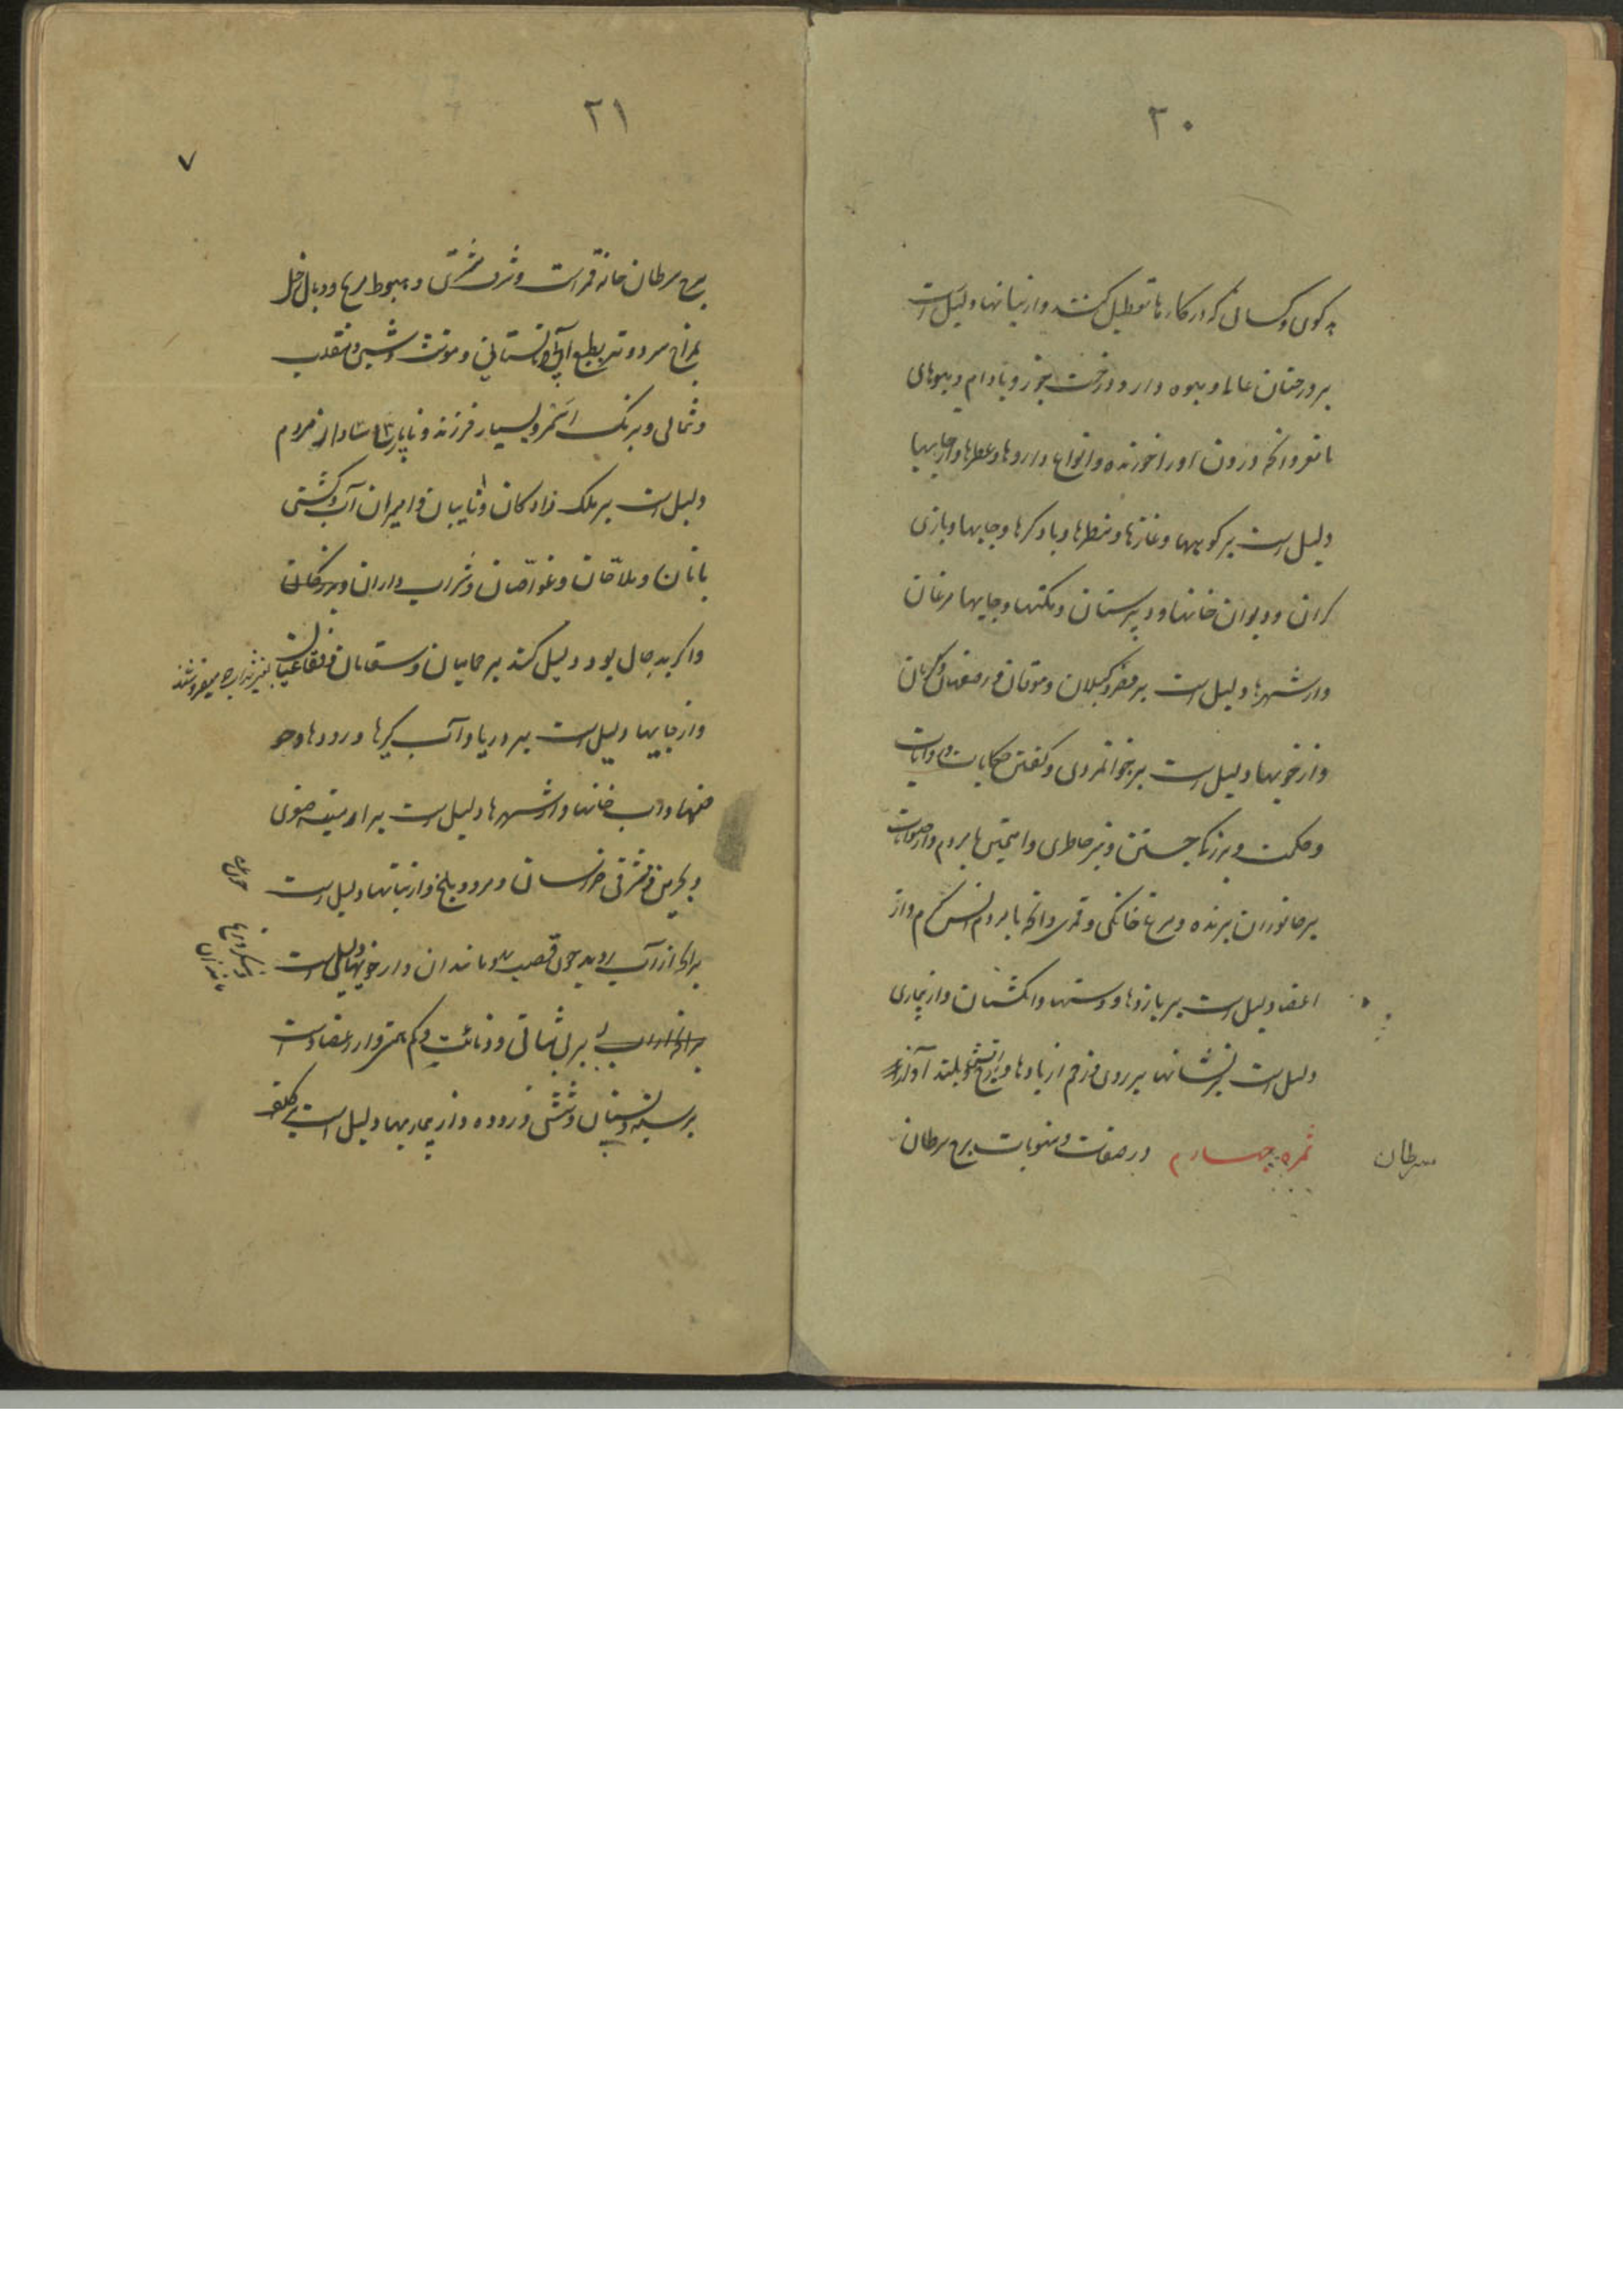 ۲۰
بد کوی و کسانی که در کارها تعطیل کنند و از نباتها دلیل است
بر درختان عالی و میوه دار و درخت جوز و بادام و میوهای
با مغز و آنچه درون او را خورند و انواع داروها و عطرها و از جایها
دلیل است بر کوهها و منظرها و بادگرها و جایها و بازی
کران و دیوان خانها و دبیرستان و مکتبها و جایها مرغان
و از شهرها دلیل است بر مصر و گیلان و موقان و اصفهان و کرمان
و از خویها دلیل است بر جوانمردی و گفتن حکایات و روایات
و حکمت و بزرگی جستن و تیز خاطری و آمیختن با مردم و از حیوانات
بر جانوران پرنده و مرغ خانگی و قمری و آنچه با مردم انس گیرد و از
اعضا دلیل است بر بازوها و دستها و انگشتان و از بیماری
دلیل است بر نشانها بر روی و زخم از بادها و بلند آواز
سرطان
ثمره چهارم در صفات و منسوبات برج سرطان
۲۱
۷
برج سرطان خانه قمر است و شرف مشتری و هبوط مریخ و وبال زحل
بمزاج سرد و تر بطبع آبی و تابستانی و مونث و شبی و منقلب
و شمالی و برنگ اسمر و بسیار فرزند و از مردم
دلیل است بر ملک زادگان و نایبان و امیران آب و کشتی
بانان و ملاحان و غواصان و شراب داران و
و اگر بد حال بود دلیل کند بر حمامیان و سقایان و فقاعیان
و از جایها دلیل است بر دریا و آب گیرها و رودها و حو
ضها و آب خانها و از شهرها دلیل است بر ارمینه صغری
و بحرین و مشرقی خراسان و مرو و بلخ و از نباتها دلیل است
بر آنچه از آب روید چون قصب و مانند آن و از خویها دلیل است
بر بی ثباتی و و کم هنر و از اعضا است
بر سینه و پستان و شش و روده و از بیماریها دلیل است بر کلف